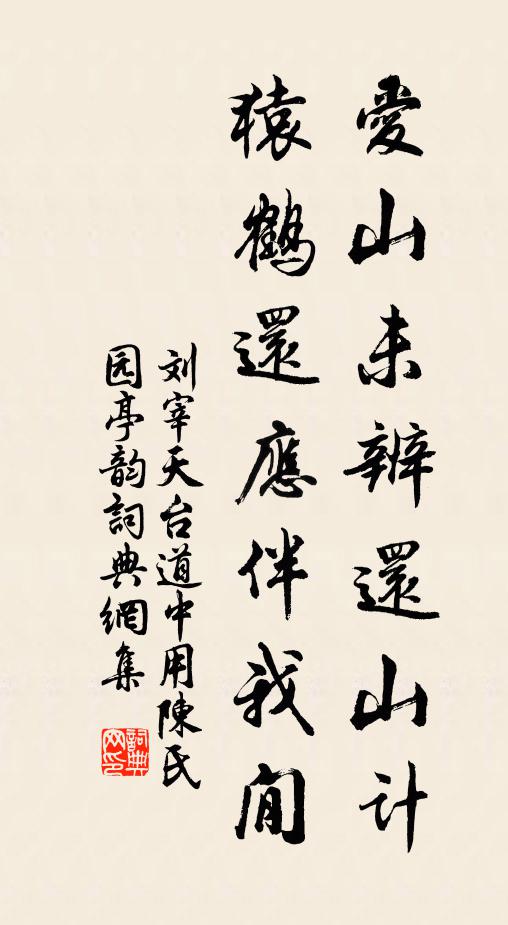 愛山未辨還山計
猿鶴還應伴我閒
刘宰天台道中用陳氏
园亭韵詞典網集
詞典网印